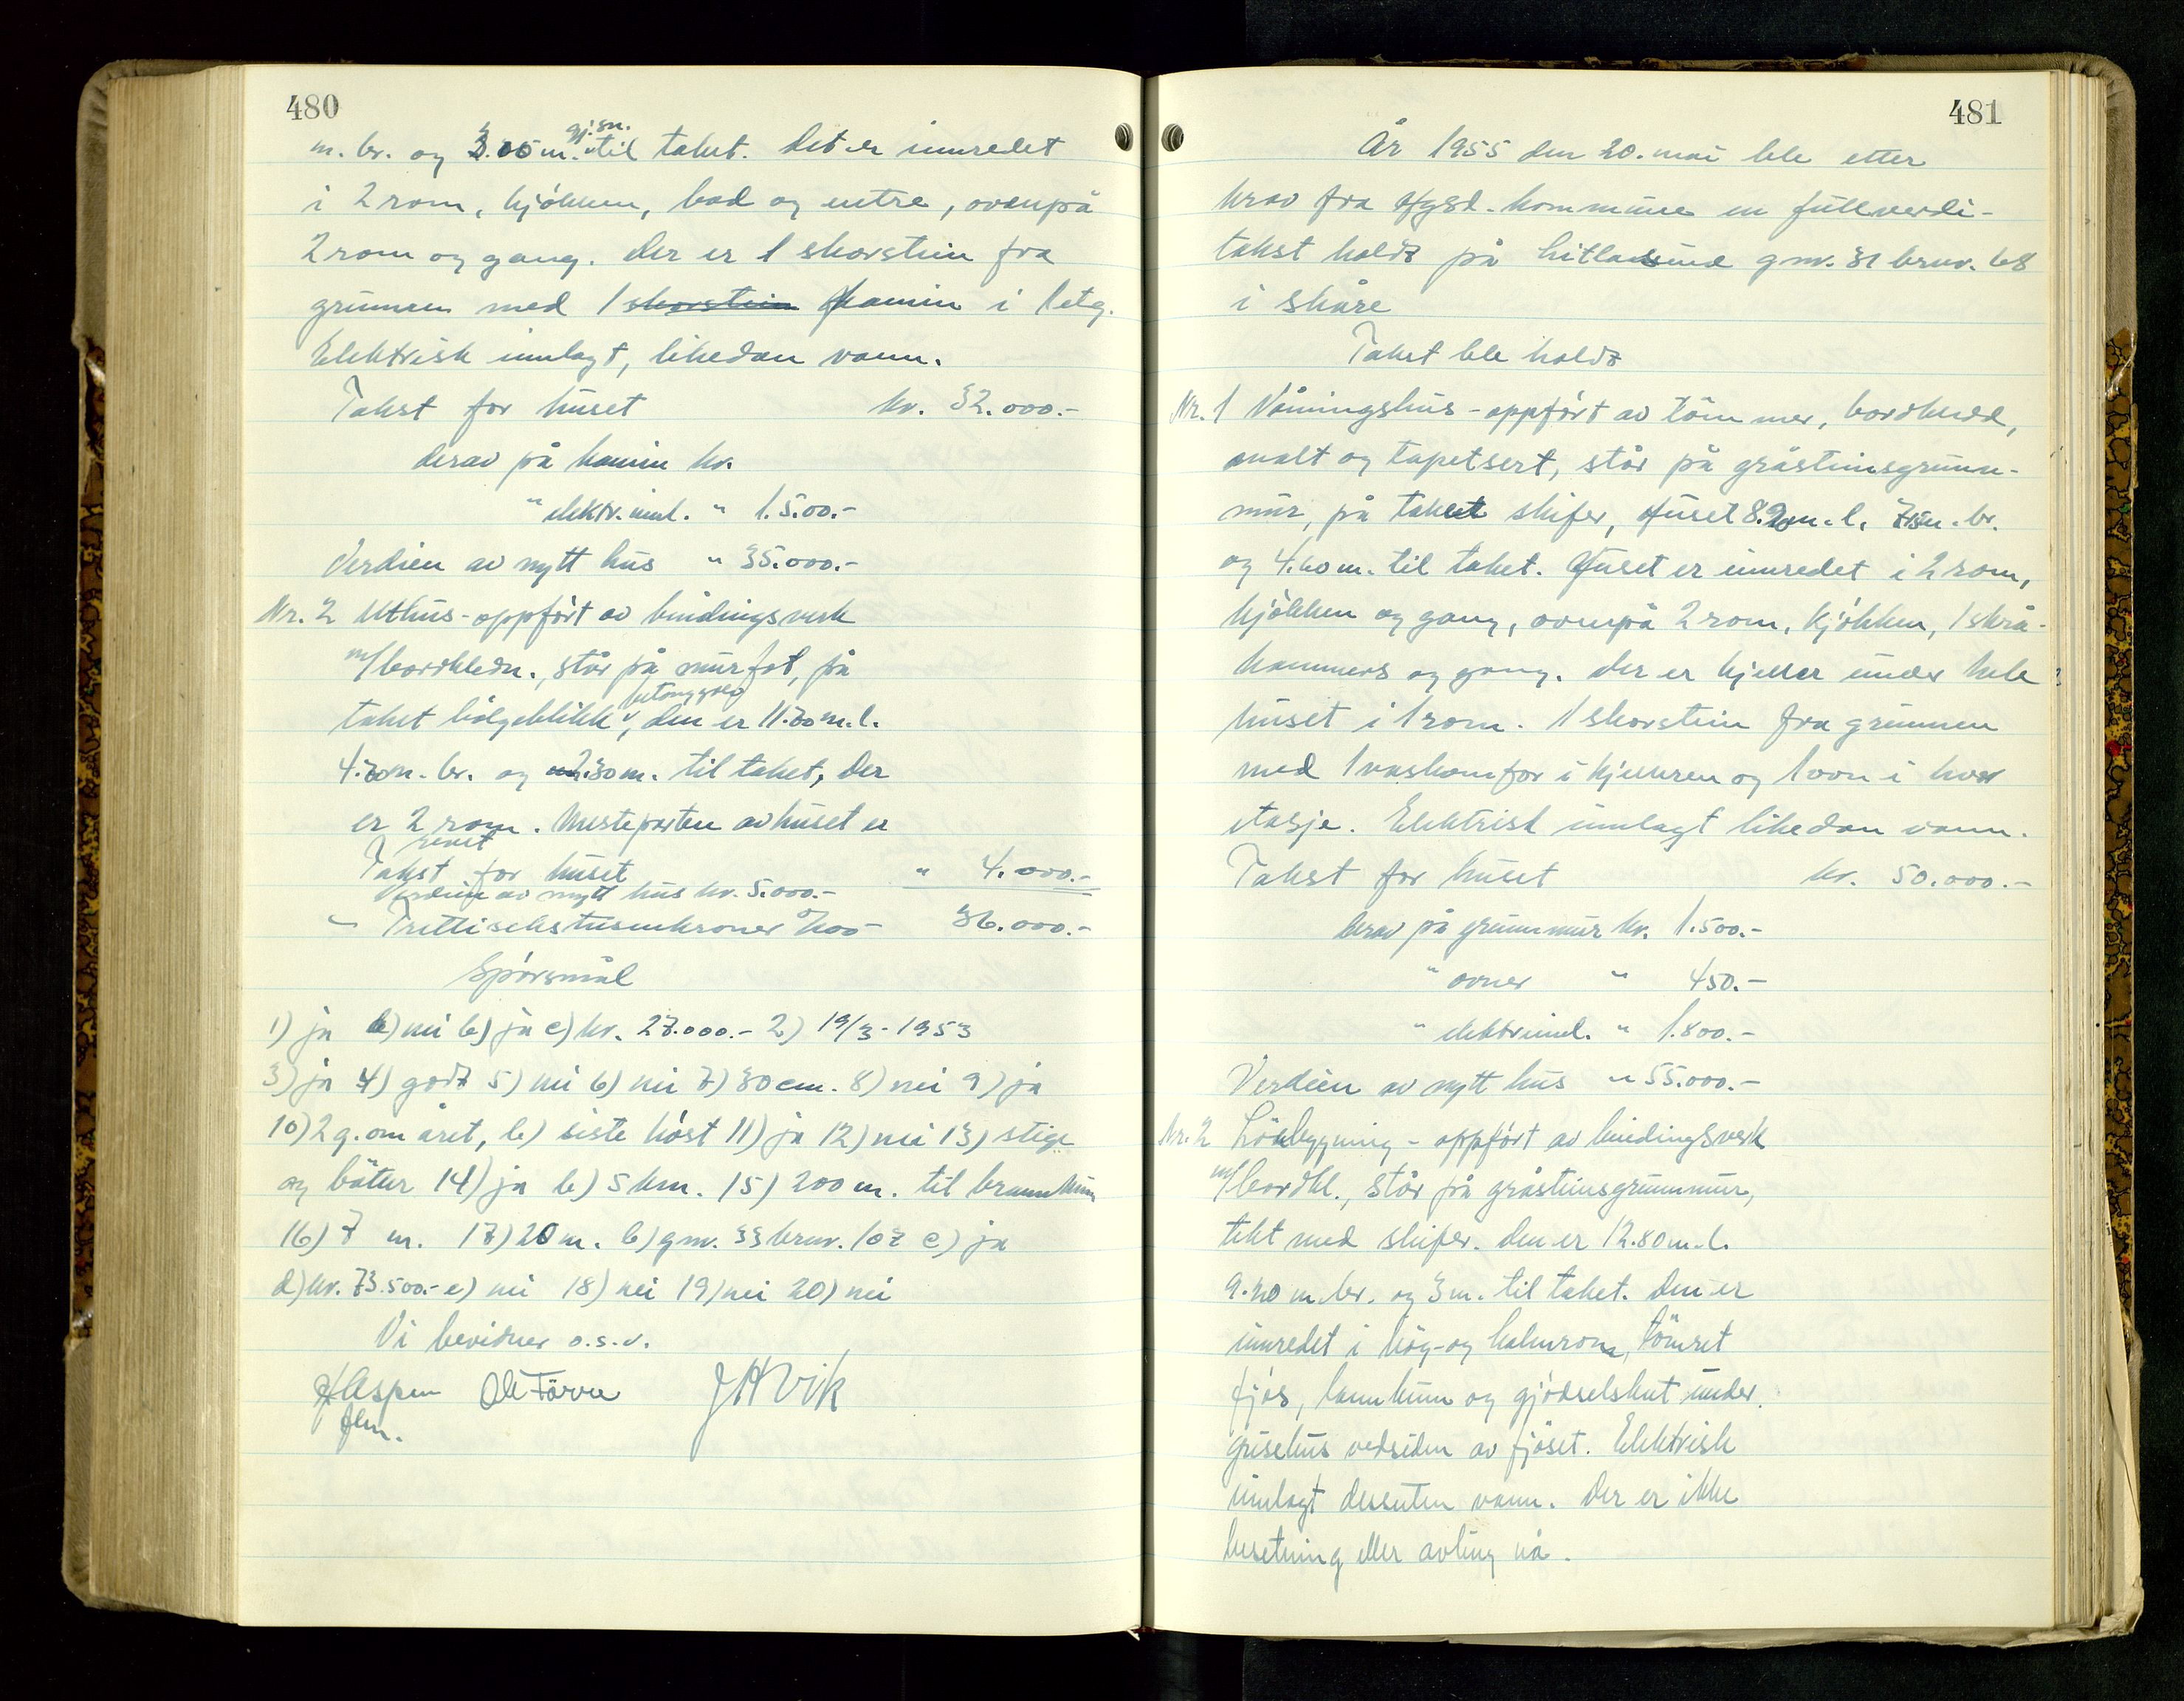 480
m. br. og 3.05 m. gj.sn. til taket. Det er innredet
i 2 rom, kjøkken, bad og entre, ovenpå
2 rom og gang. Der er 1 skorstein fra
grunnen med 1 skorstein kamin i 1 etg.
Elektrisk innlagt, likedan vann.
Takst for huset kr. 32.000.-
derav på kamin kr.
" elektr. innl. " 1.500.-
Verdien av nytt hus " 35.000.-
Nr. 2 Uthus - oppført av bindingsverk
m/bordkledn., står på murfot, på
taket bølgeblikk, betonggolv, den er 11.70 m. l.
4.70 m. br. og 2.30 m. til taket, der
er 2 rom. Mesteparten av huset er
revet
Takst for huset " 4.000.-
Verdien av nytt hus kr. 5.000.-
- Trettisekstusenkroner 0/100 - 36.000.-
Spørsmål
1) ja b) nei b) ja c) kr. 27.000.- 2) 19/3 - 1953
3) ja 4) godt 5) nei 6) nei 7) 30 cm. 8) nei 9) ja
10) 2 g. om året, b) siste høst 11) ja 12) nei 13) stige
og bøtter 14) ja b) 5 km. 15) 200 m. til brannkum
16) 7 m. 17) 20 m. b) gnr. 33 brnr. 107 c) ja
d) kr. 73.500.- e) nei 18) nei 19) nei 20) nei
Vi bevidner o.s.v.
H Aspen Ole Førre J H Vik
flm.
481
År 1955 den 20. mai ble etter
krav fra Hgsd. kommune en fullverdi-
takst holdt på Litlasund gnr. 31 brnr. 68
i Skåre
Takst ble holdt
Nr. 1 Våningshus - oppført av tømmer, bordkledd,
malt og tapetsert, står på gråsteinsgrunn-
mur, på taket skifer, Huset 8.20 m. l. 7.15 m. br.
og 4.60 m. til taket. Huset er innredet i 2 rom,
kjøkken og gang, ovenpå 2 rom, kjøkken, 1 skrå-
kammers og gang. Der er kjeller under hele
huset i 1 rom. 1 skorstein fra grunnen
med 1 vaskomfor i kjelleren og 1 ovn i hver
etasje. Elektrisk innlagt likedan vann.
Takst for huset kr. 50.000.-
derav på grunnmur kr. 1.500.-
" ovner " 450.-
" elektr innl. " 1.800.-
Verdien av nytt hus " 55.000.-
Nr. 2 Løebygning - oppført av bindingsverk
m/bordkl., står på gråsteinsgrunnmur,
tekt med skifer. Den er 12.80 m. l.
9.20 m. br. og 3 m. til taket. Den er
innredet i høy- og halmrom, tømret
fjøs, lannkum og gjødselskut under.
grisehus vedsiden av fjøset. Elektrisk
innlagt dessuten vann. Der er ikke
besetning eller avling nå.